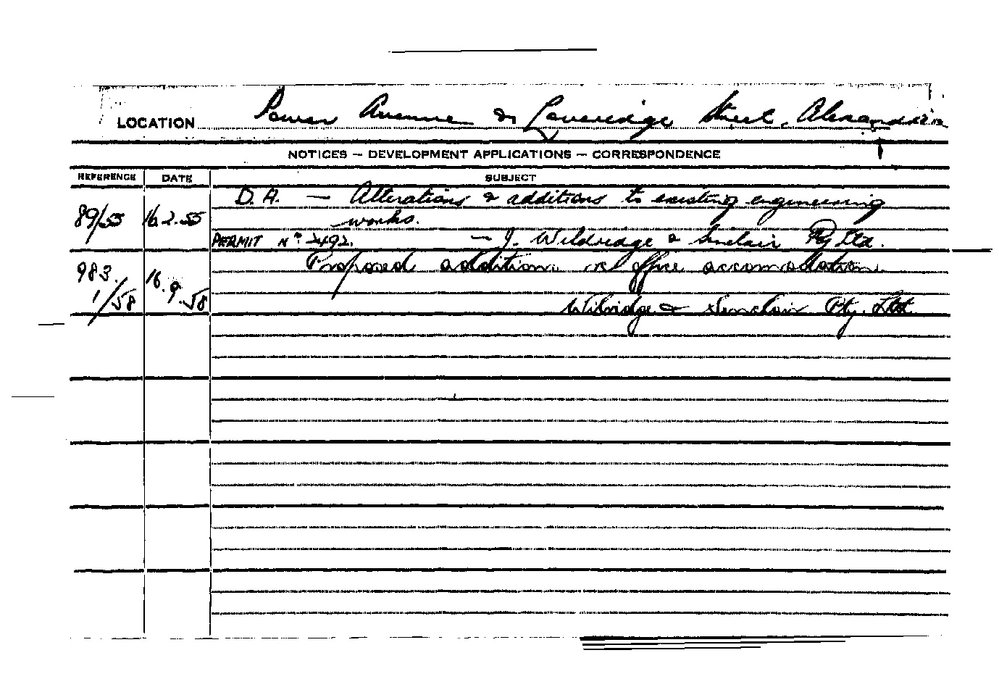 LOCATION Power Avenue & Loveridge Street, Alexandria
NOTICES — DEVELOPMENT APPLICATIONS — CORRESPONDENCE
REFERENCE DATE SUBJECT
89/55 16.2.55 D.A. — Alterations & additions to existing engineering
works.
PERMIT No 2492. — J. Wildridge & Sinclair Pty Ltd.
983. 16.9.58 Proposed addition. office accomodation.
1/58 Wilridge & Sinclair Pty. Ltd.